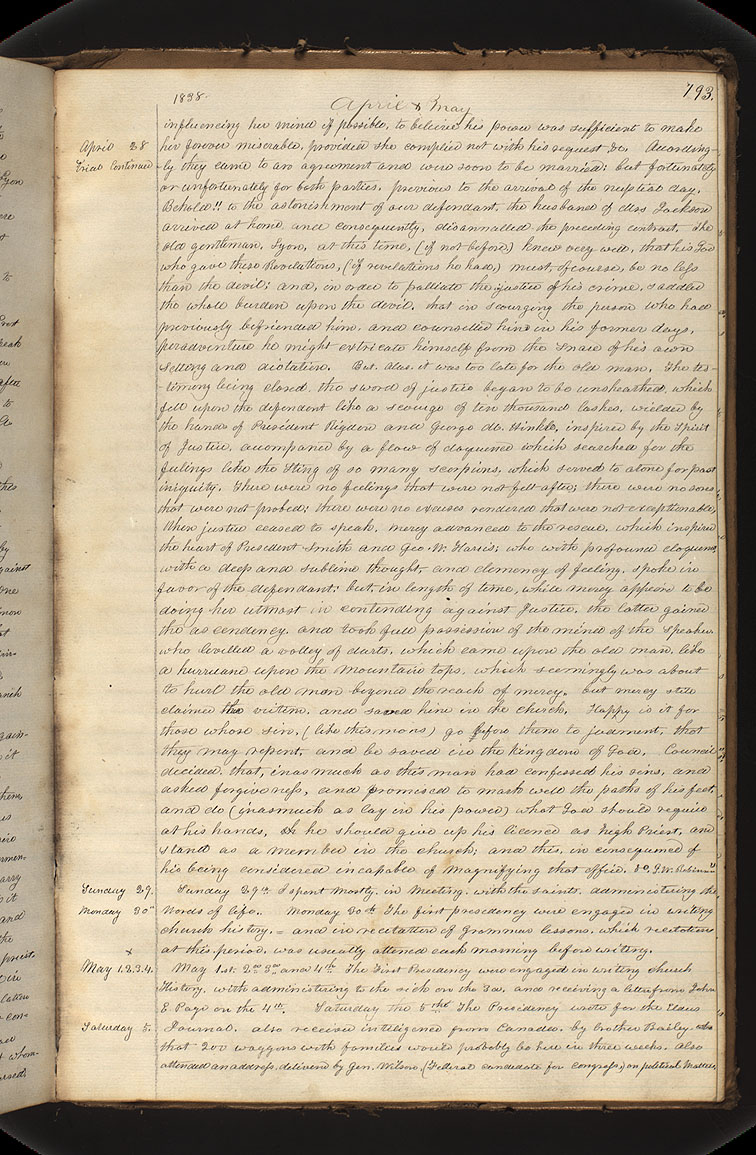 1838. April & May 793.
influencing her mind if possible, to believe his power was sufficient to make
April 28 her forever miserable, provided she complied not with his request &c. According-
Trial Continued ly they came to an agreement and were soon to be married; but fortunately
or unfortunately for both parties, previous to the arrival of the nuptial day,
Behold!! to the astonishment of our defendant, the husband of Mrs Jackson
arrived at home, and consequently, disannulled the preceding contract, The
old gentleman, Lyon, at this time, (if not before,) knew very well, that his God
who gave these Revelations, (if revelations he had,) must, of course, be no less
than the devil; and, in order to palliate the justice of his crime, saddled
the whole burden upon the devil, that in scourging the person who had
previously befriended him, and counselled him in his former days,
peradventure he might extricate himself from the snare of his own
setting and dictation. But, alas, it was too late for the old man, The tes-
timony being closed, the sword of justice began to be unsheathed, which
fell upon the defendent like a scourge of ten thousand lashes, wielded by
the hand of President Rigdon and George M. Hinkle, inspired by the Spirit
of Justice, accompanied by a flow of eloquence which searched for the
feelings like the Sting of so many scorpions, which served to atone for past
iniquity. There were no feelings that were not felt after; there were no sores
that were not probed; there were no excuses rendered that were not exceptionable,
When justice ceased to speak, mercy advanced to the rescue, which inspired
the heart of President Smith and Geo. W. Harris; who with profound eloquence
with a deep and sublime thought, and clemency of feeling, spoke in
favor of the defendant; but, in length of time, while mercy appeared to be
doing her utmost in contending against Justice, the latter gained
the ascendency, and took full possession of the mind of the speaker
who levelled a volley of darts, which came upon the old man, like
a hurricane upon the mountain tops, which seemingly was about
to hurl the old man beyond the reach of mercy, but mercy still
claimed the victim, and saved him in the church, Happy is it for
those whose sins, (like this mans) go before them to judment, that
they may repent, and be saved in the kingdom of God, Council
decided, that, inasmuch as this man had confessed his sins, and
asked forgiveness, and promised to mark well the paths of his feet,
and do (inasmuch as lay in his power) what God should require
at his hands, he should give up his licence as High Priest, and
stand as a member in the church; and this, in consequence of
his being considered incapable of magnifying that office, &c,
Sunday 29. Sunday 29th I spent mostly in Meeting, with the saints, administering the
Monday 30th Words of life. Monday 30th The first presidency were engaged in writing
church history, = and in recitation of grammar lessons, which recitation
x at this period, was usually attened each morning before writing.
May 1.2.3.4. May 1st. 2nd 3rd and 4th. The First Presidency were engaged in writing church
History, with administering to the sick on the 3rd, and receiving a letter from John
E. Page on the 4th. Saturday the 5th The Presidency wrote for the Elders
Saturday 5. Journal, also received inteligence from Canada, by brother Bailey,
that 200 waggons with families would probably be here in three weeks. also
attended an address, delivered by Gen. Wilson, (Federal candidate for congress,) on political Matters,